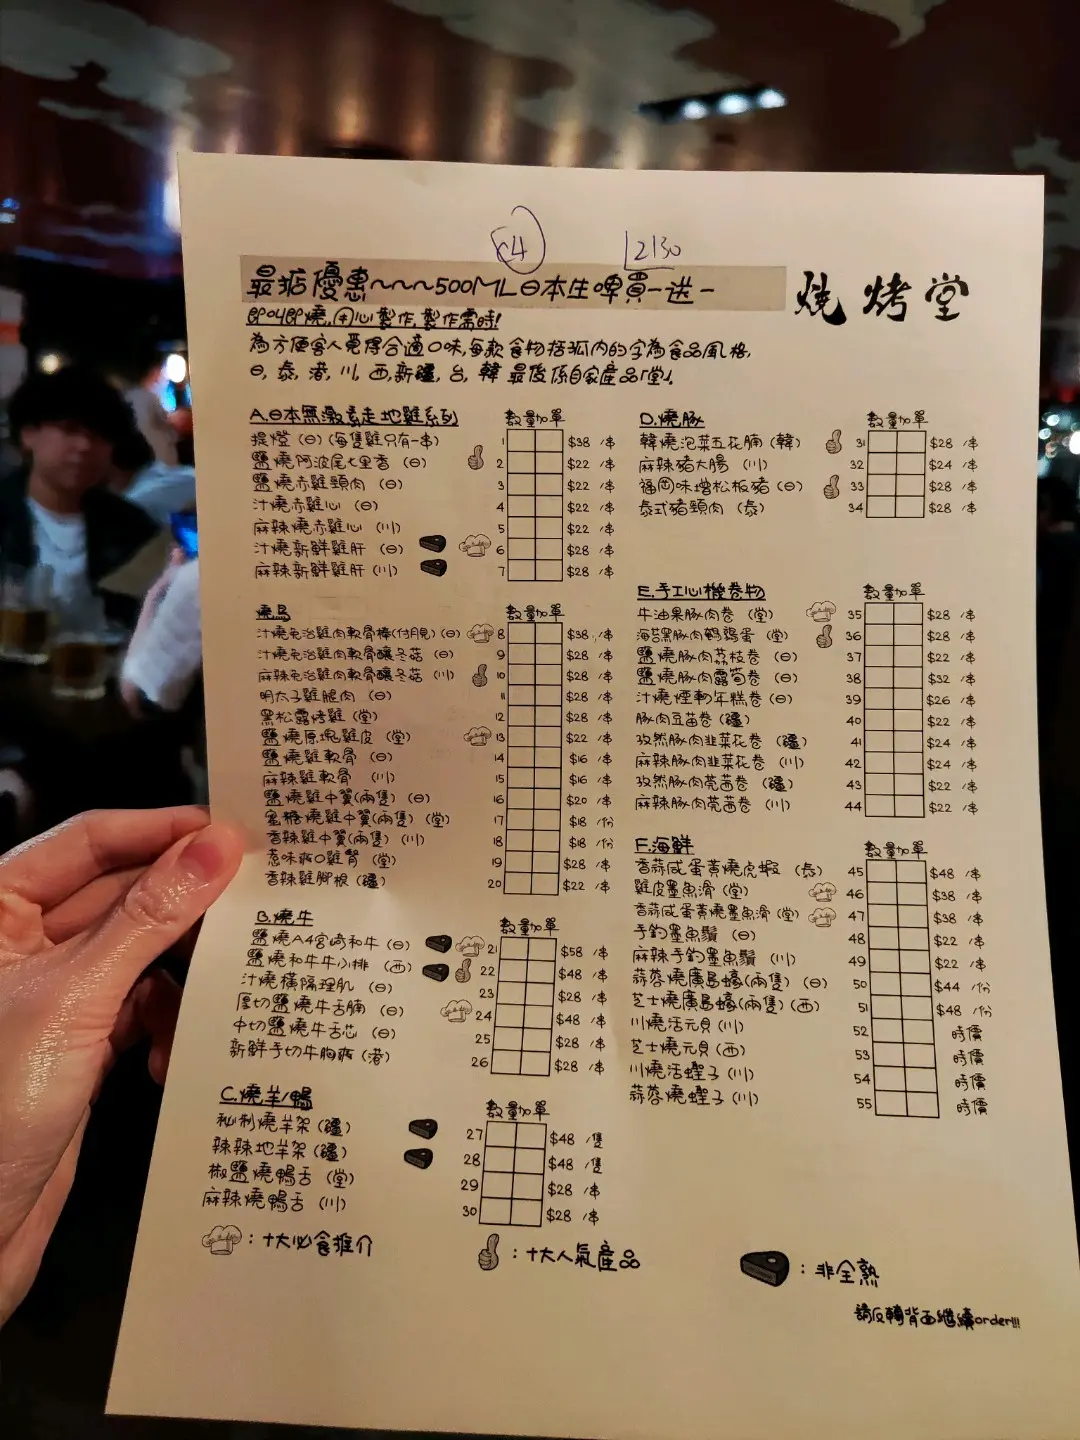 C4
2130
最抵優惠~~~500ML日本生啤買一送一
燒烤堂
即叫即燒,用心製作,製作需時!
為方便客人覓得合適口味,每款食物括弧內的字為食品風格,
日,泰,港,川,西,新疆,台,韓 最後係自家產品「堂」.
A.日本無激素走地雞系列 數量加單
提燈(日)(每隻雞只有一串) 1 $38 /串
鹽燒阿波尾七里香 (日) 2 $22 /串
鹽燒赤雞頸肉 (日) 3 $22 /串
汁燒赤雞心 (日) 4 $22 /串
麻辣燒赤雞心 (川) 5 $22 /串
汁燒新鮮雞肝 (日) 6 $28 /串
麻辣新鮮雞肝(川) 7 $28 /串
燒鳥 數量加單
汁燒免治雞肉軟骨棒(付月見)(日) 8 $38 /串
汁燒免治雞肉軟骨釀冬菇 (日) 9 $28 /串
麻辣免治雞肉軟骨釀冬菇 (川) 10 $28 /串
明太子雞腿肉 (日) 11 $28 /串
黑松露烤雞 (堂) 12 $28 /串
鹽燒原塊雞皮 (堂) 13 $22 /串
鹽燒雞軟骨 (日) 14 $16 /串
麻辣雞軟骨 (川) 15 $16 /串
鹽燒雞中翼(兩隻) (日) 16 $20 /串
蜜糖燒雞中翼(兩隻) (堂) 17 $18 /份
香辣雞中翼(兩隻) (川) 18 $18 /份
惹味爽口雞腎 (堂) 19 $28 /串
香辣雞腳根 (疆) 20 $22 /串
B.燒牛 數量加單
鹽燒A4宮崎和牛(日) 21 $58 /串
鹽燒和牛牛小排 (西) 22 $48 /串
汁燒橫隔理肌 (日) 23 $28 /串
厚切鹽燒牛舌腩 (日) 24 $48 /串
中切鹽燒牛舌芯 (日) 25 $28 /串
新鮮手切牛胸爽 (港) 26 $28 /串
C.燒羊/鴨 數量加單
秘制燒羊架(疆) 27 $48 /隻
辣辣地羊架(疆) 28 $48 /隻
椒鹽燒鴨舌 (堂) 29 $28 /串
麻辣燒鴨舌 (川) 30 $28 /串
D.燒豚 數量加單
韓燒泡菜五花腩(韓) 31 $28 /串
麻辣豬大腸 (川) 32 $24 /串
福岡味增松板豬(日) 33 $28 /串
泰式豬頸肉 (泰) 34 $28 /串
E.手工心機卷物 數量加單
牛油果豚肉卷 (堂) 35 $28 /串
海苔黑豚肉鵪鶉蛋 (堂) 36 $28 /串
鹽燒豚肉荔枝卷 (日) 37 $22 /串
鹽燒豚肉露筍卷 (日) 38 $32 /串
汁燒煙韌年糕卷(日) 39 $26 /串
豚肉豆苗卷(疆) 40 $22 /串
孜然豚肉韭菜花卷 (疆) 41 $24 /串
麻辣豚肉韭菜花卷 (川) 42 $24 /串
孜然豚肉芫茜卷 (疆) 43 $22 /串
麻辣豚肉芫茜卷 (川) 44 $22 /串
F.海鮮 數量加單
香蒜咸蛋黃燒虎蝦 (泰) 45 $48 /串
雞皮墨魚滑 (堂) 46 $38 /串
香蒜咸蛋黃燒墨魚滑 (堂) 47 $38 /串
手釣墨魚鬚 (日) 48 $22 /串
麻辣手釣墨魚鬚 (川) 49 $22 /串
蒜蓉燒廣島蠔(兩隻) (日) 50 $44 /份
芝士燒廣島蠔(兩隻) (西) 51 $48 /份
川燒活元貝(川) 52 時價
芝士燒元貝(西) 53 時價
川燒活蟶子 (川) 54 時價
蒜蓉燒蟶子 (川) 55 時價
:十大必食推介
:十大人氣產品
:非全熟
請反轉背面繼續order!!!